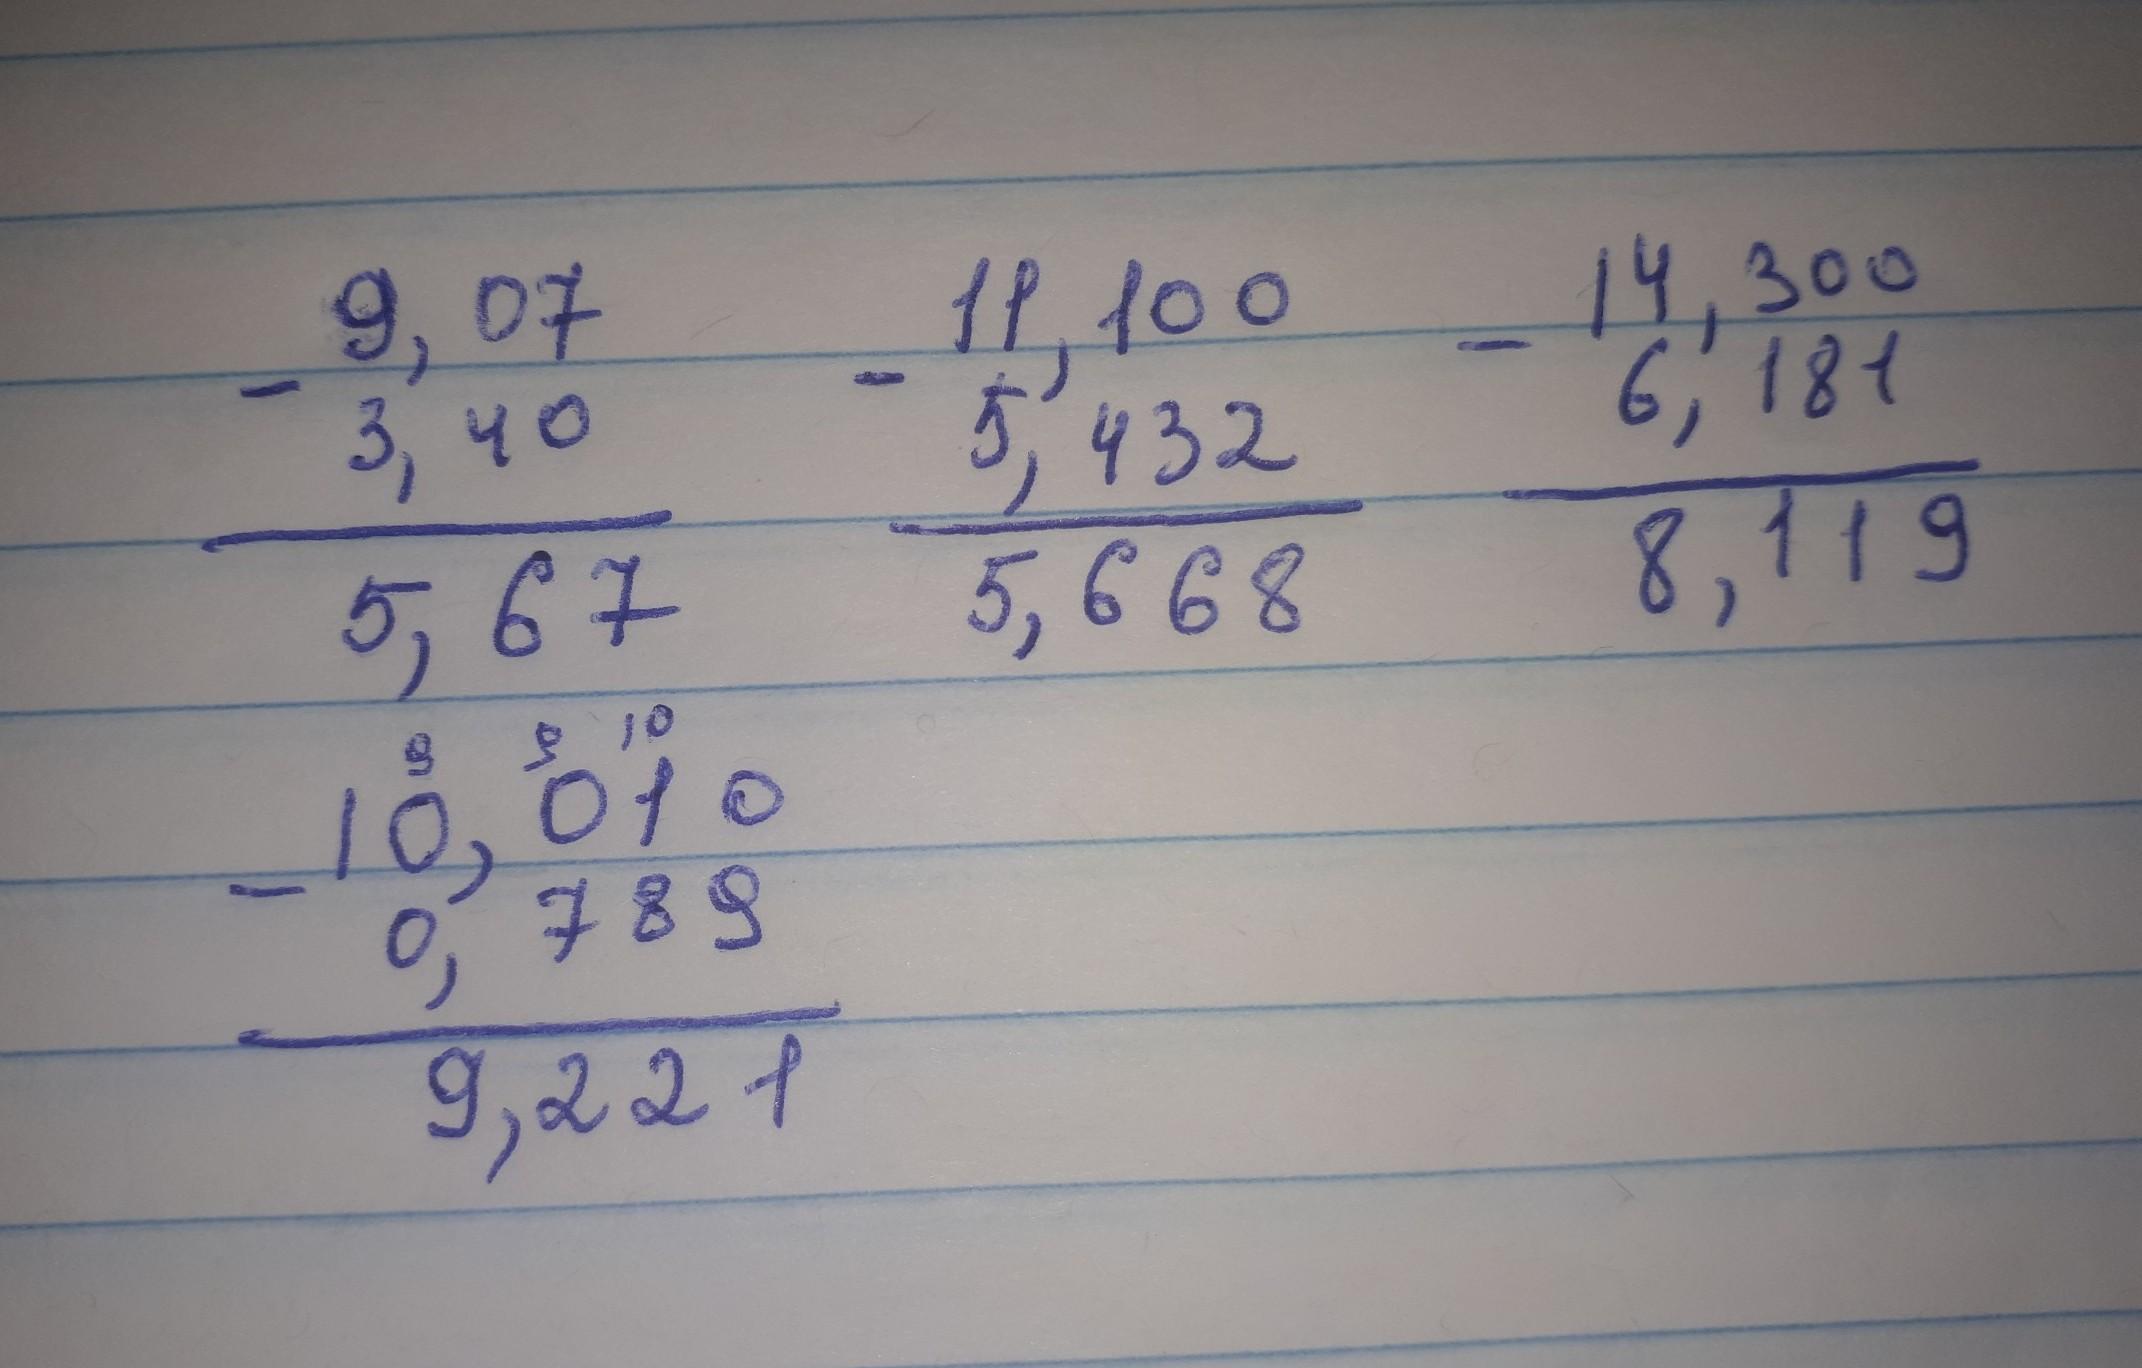 9,07 11,100 14,300
- - -
3,40 5,432 6,181
5,67 5,668 8,119
9 9 10
10,010
-
0,789
9,221